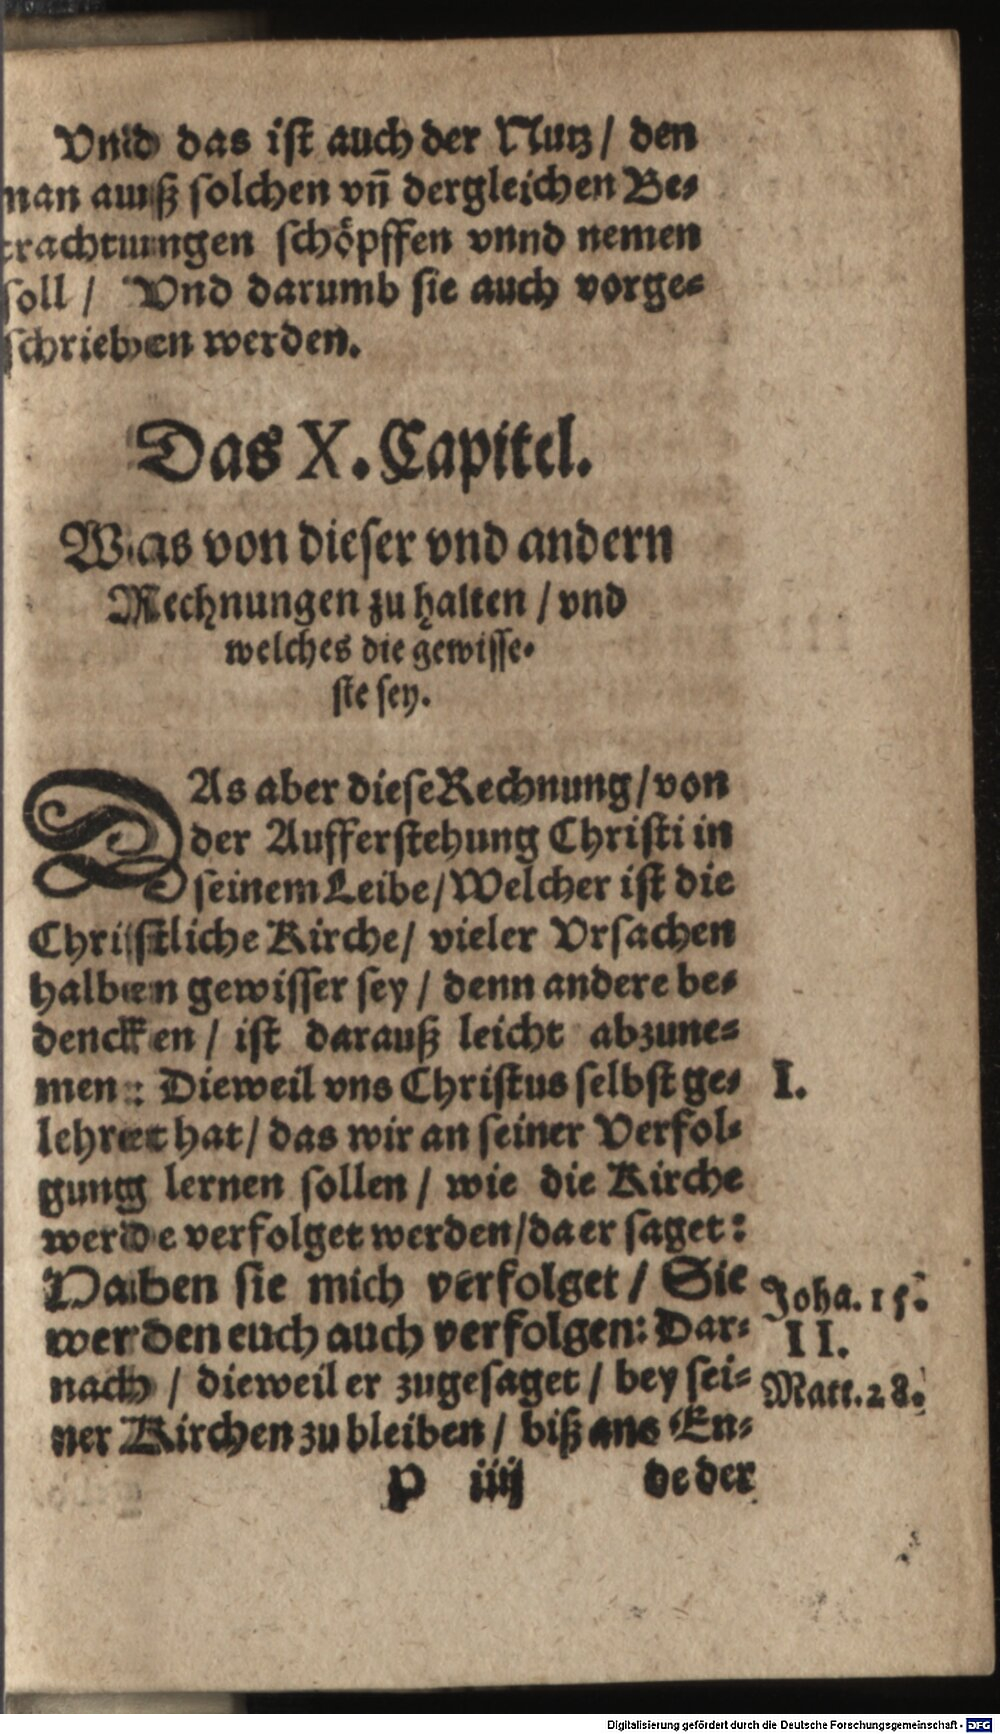 Vnd das ist auch der Nutz / den
man auß solchen vn̄ dergleichen Be-
trachtungen schöpffen vnnd nemen
soll / Vnd darumb sie auch vorge-
schrieben werden.
Das X. Capitel.
Was von dieser vnd andern
Rechnungen zu halten / vnd
welches die gewisse-
ste sey.
DAs aber diese Rechnung / von
der Aufferstehung Christi in
seinem Leibe / Welcher ist die
Christliche Kirche / vieler Vrsachen
halben gewisser sey / denn andere be-
dencken / ist darauß leicht abzune-
men: Dieweil vns Christus selbst ge- I.
lehret hat / das wir an seiner Verfol-
gung lernen sollen / wie die Kirche
werde verfolget werden / da er saget:
Haben sie mich verfolget / Sie Joha. 15.
werden euch auch verfolgen: Dar- II.
nach / dieweil er zugesaget / bey sei- Matt. 28.
ner Kirchen zu bleiben / biß ans En-
P iiij de der
Digitalisierung gefördert durch die Deutsche Forschungsgemeinschaft - DFG